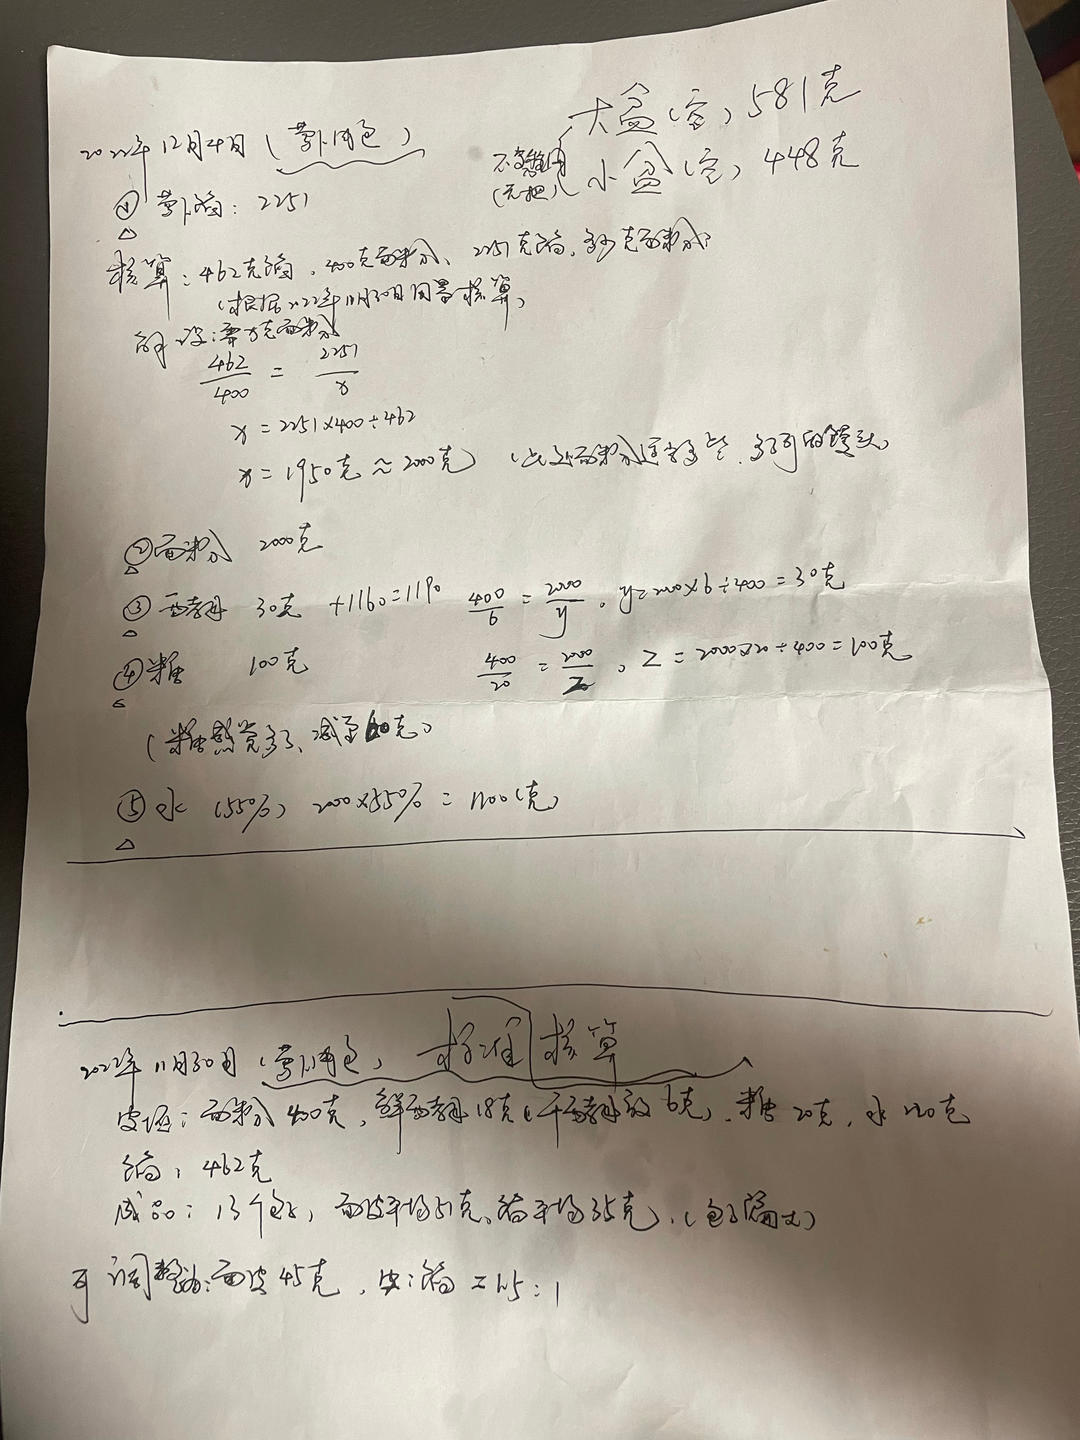 大盆(空) 581克
2022年12月4日 (萝卜肉包)
不锈钢
小盆(空) 448克
(无把)
① 萝卜馅: 2251
核算: 462克馅、400克面粉、2251克馅、多少克面粉?
(根据2022年11月30日用量核算)
解设: 要x克面粉
462/400 = 2251/x
x = 2251×400÷462
x = 1950克 ≈ 2000克 (比这面粉适当多些、多了可的馒头)
② 面粉 2000克
③ 酵母 30克 +1160=1190 400/6 = 2000/y , y=2000×6÷400=30克
④ 糖 100克 400/20 = 2000/Z , Z=2000×20÷400=100克
(糖感觉多了、减至60克)
⑤ 水 (55%) 2000×55% = 1100(克)
2022年11月30日 (萝卜肉包) 标准核算
皮坯: 面粉400克, 鲜酵母18克(干酵母放6克), 糖20克, 水220克
馅: 462克
成品: 13个包子, 面皮平均51克、馅平均35克, (包子偏大)
可调整为: 面皮45克, 皮:馅=1.5:1